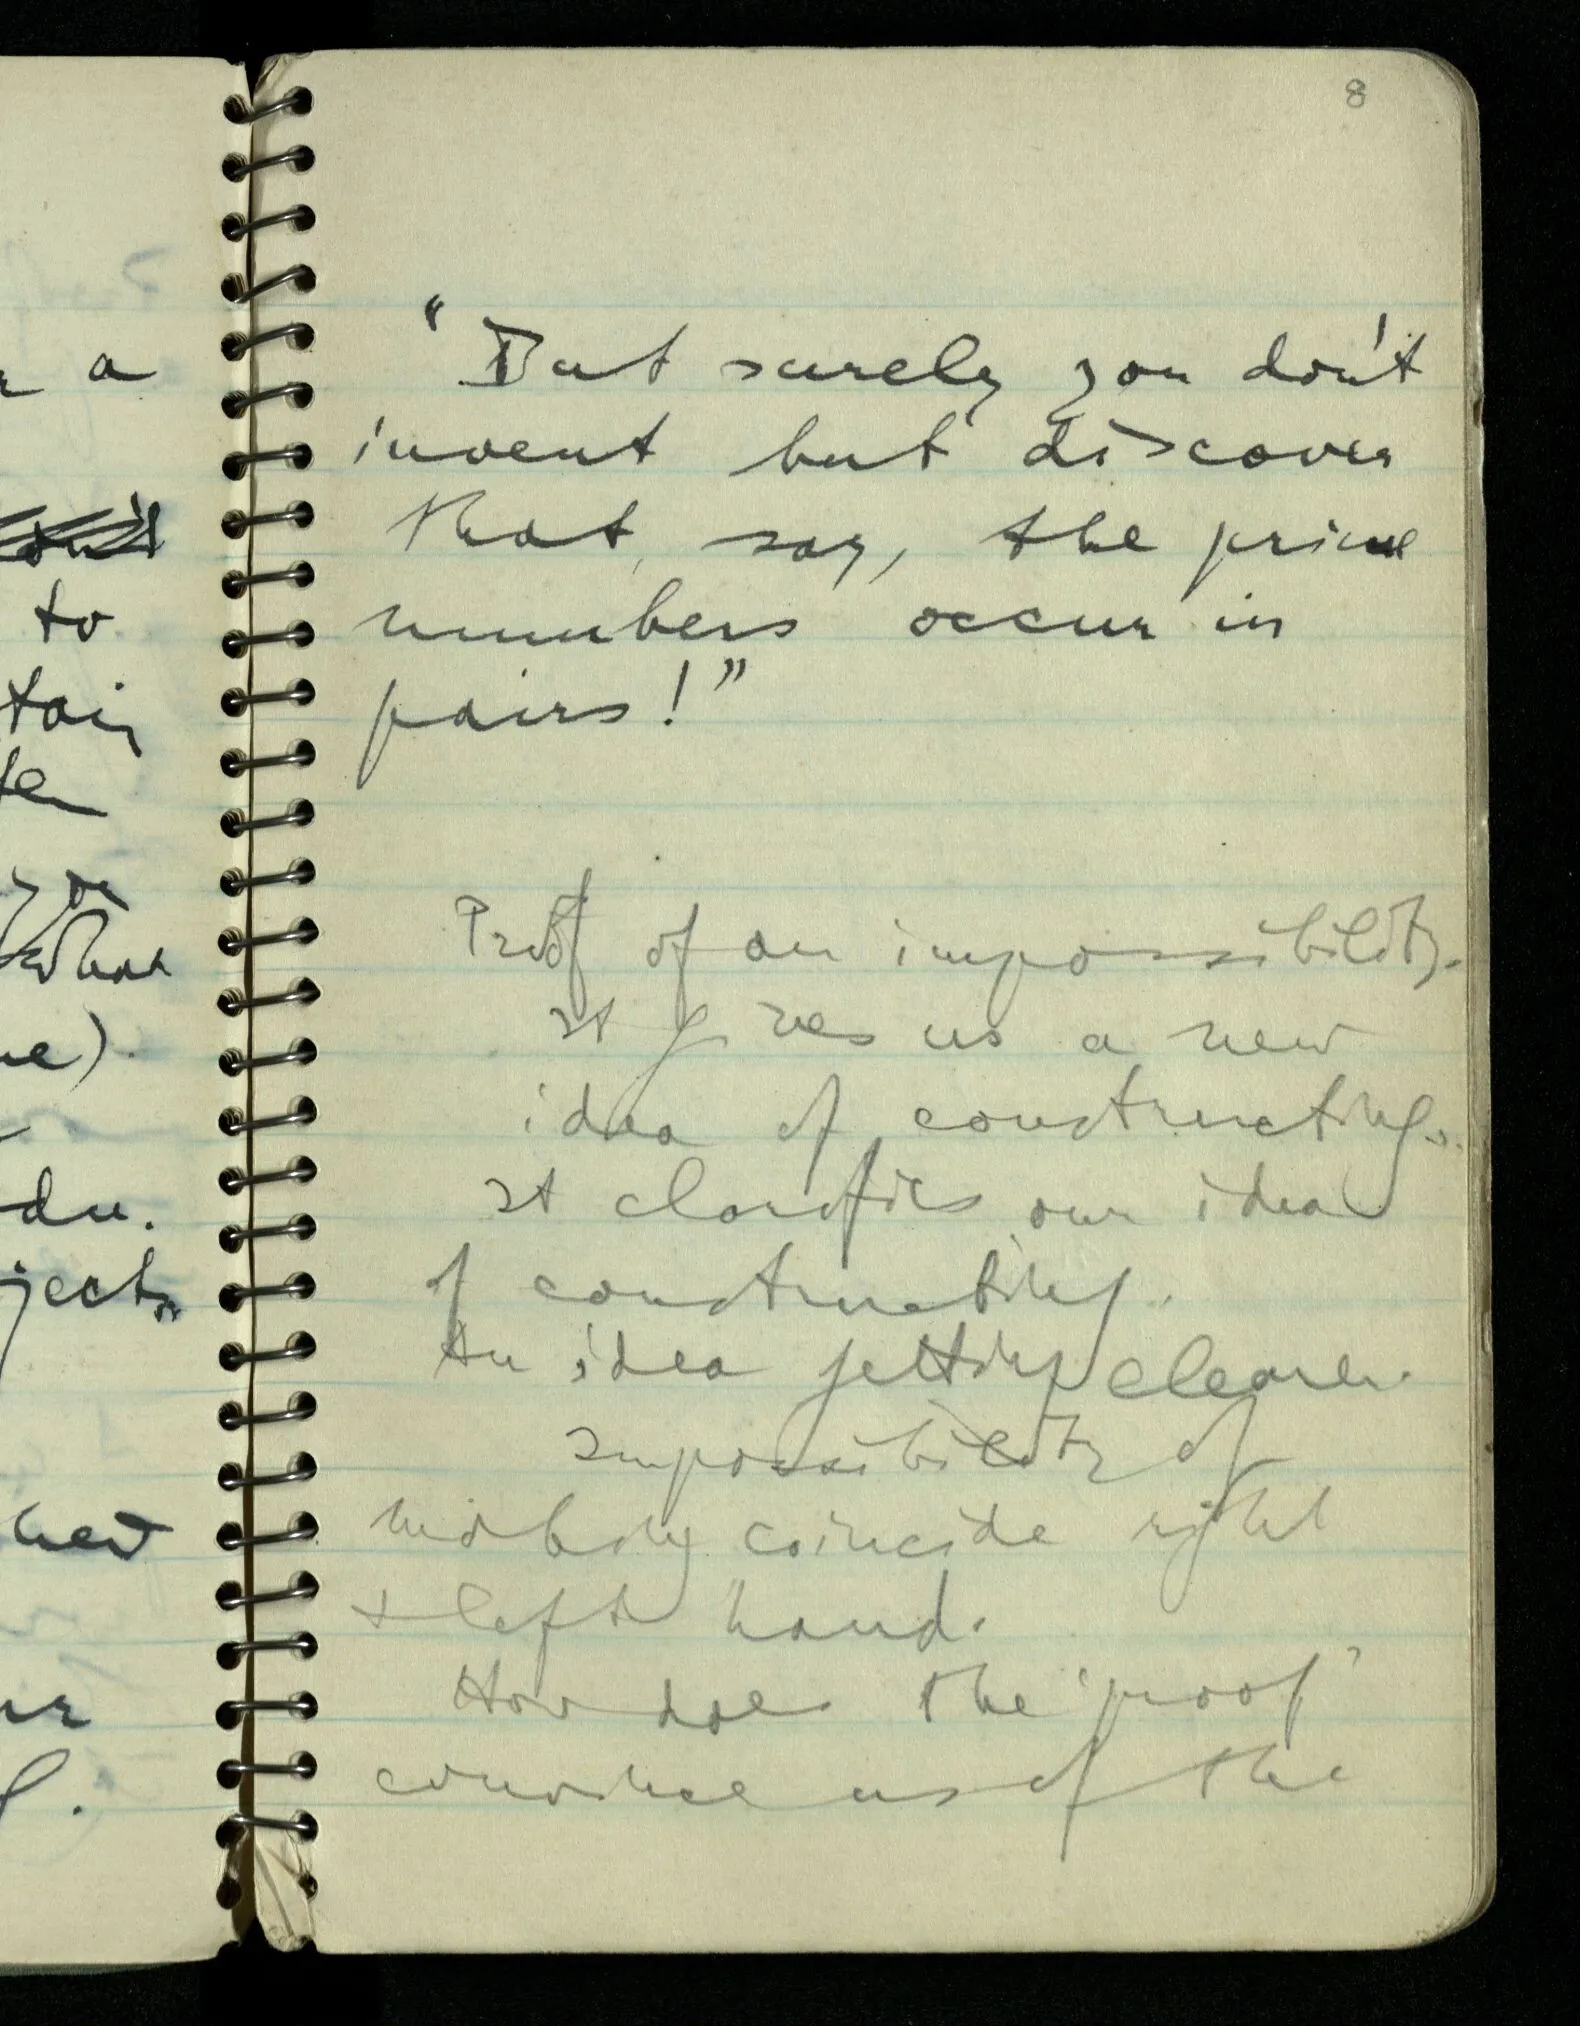 8
"But surely you don't
invent but discover
that, say, the prime
numbers occur in
pairs!"
Proof of an impossibility.
It gives us a new
idea of constructing.
It clarifies our idea
of constructing.
An idea getting clearer.
Impossibility of
making coincide right
& left hand.
How does the 'proof'
convince us of the
a
to
you
what